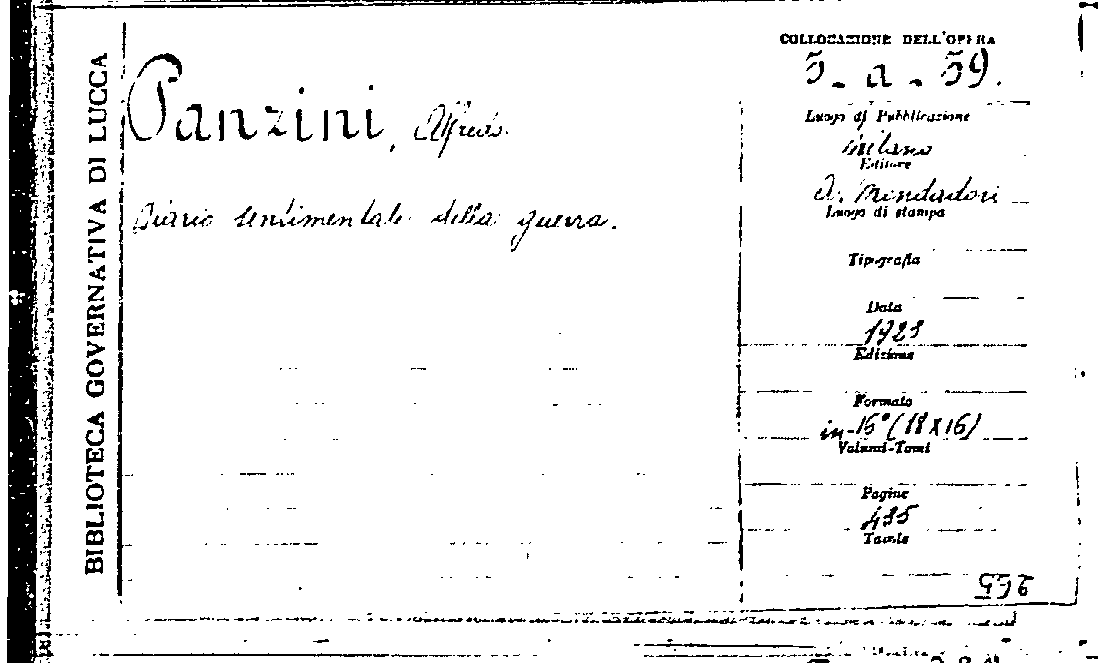 BIBLIOTECA GOVERNATIVA DI LUCCA
Panzini, Alfredo.
Diario sentimentale della guerra.
COLLOCAZIONE DELL'OPERA
5 - a - 59.
Luogo di Pubblicazione
Milano
Editore
A. Mondadori
Luogo di stampa
Tipografia
Data
1923
Edizione
Formato
in-16° (18 X 16)
Volumi-Tomi
Pagine
435
Tavole